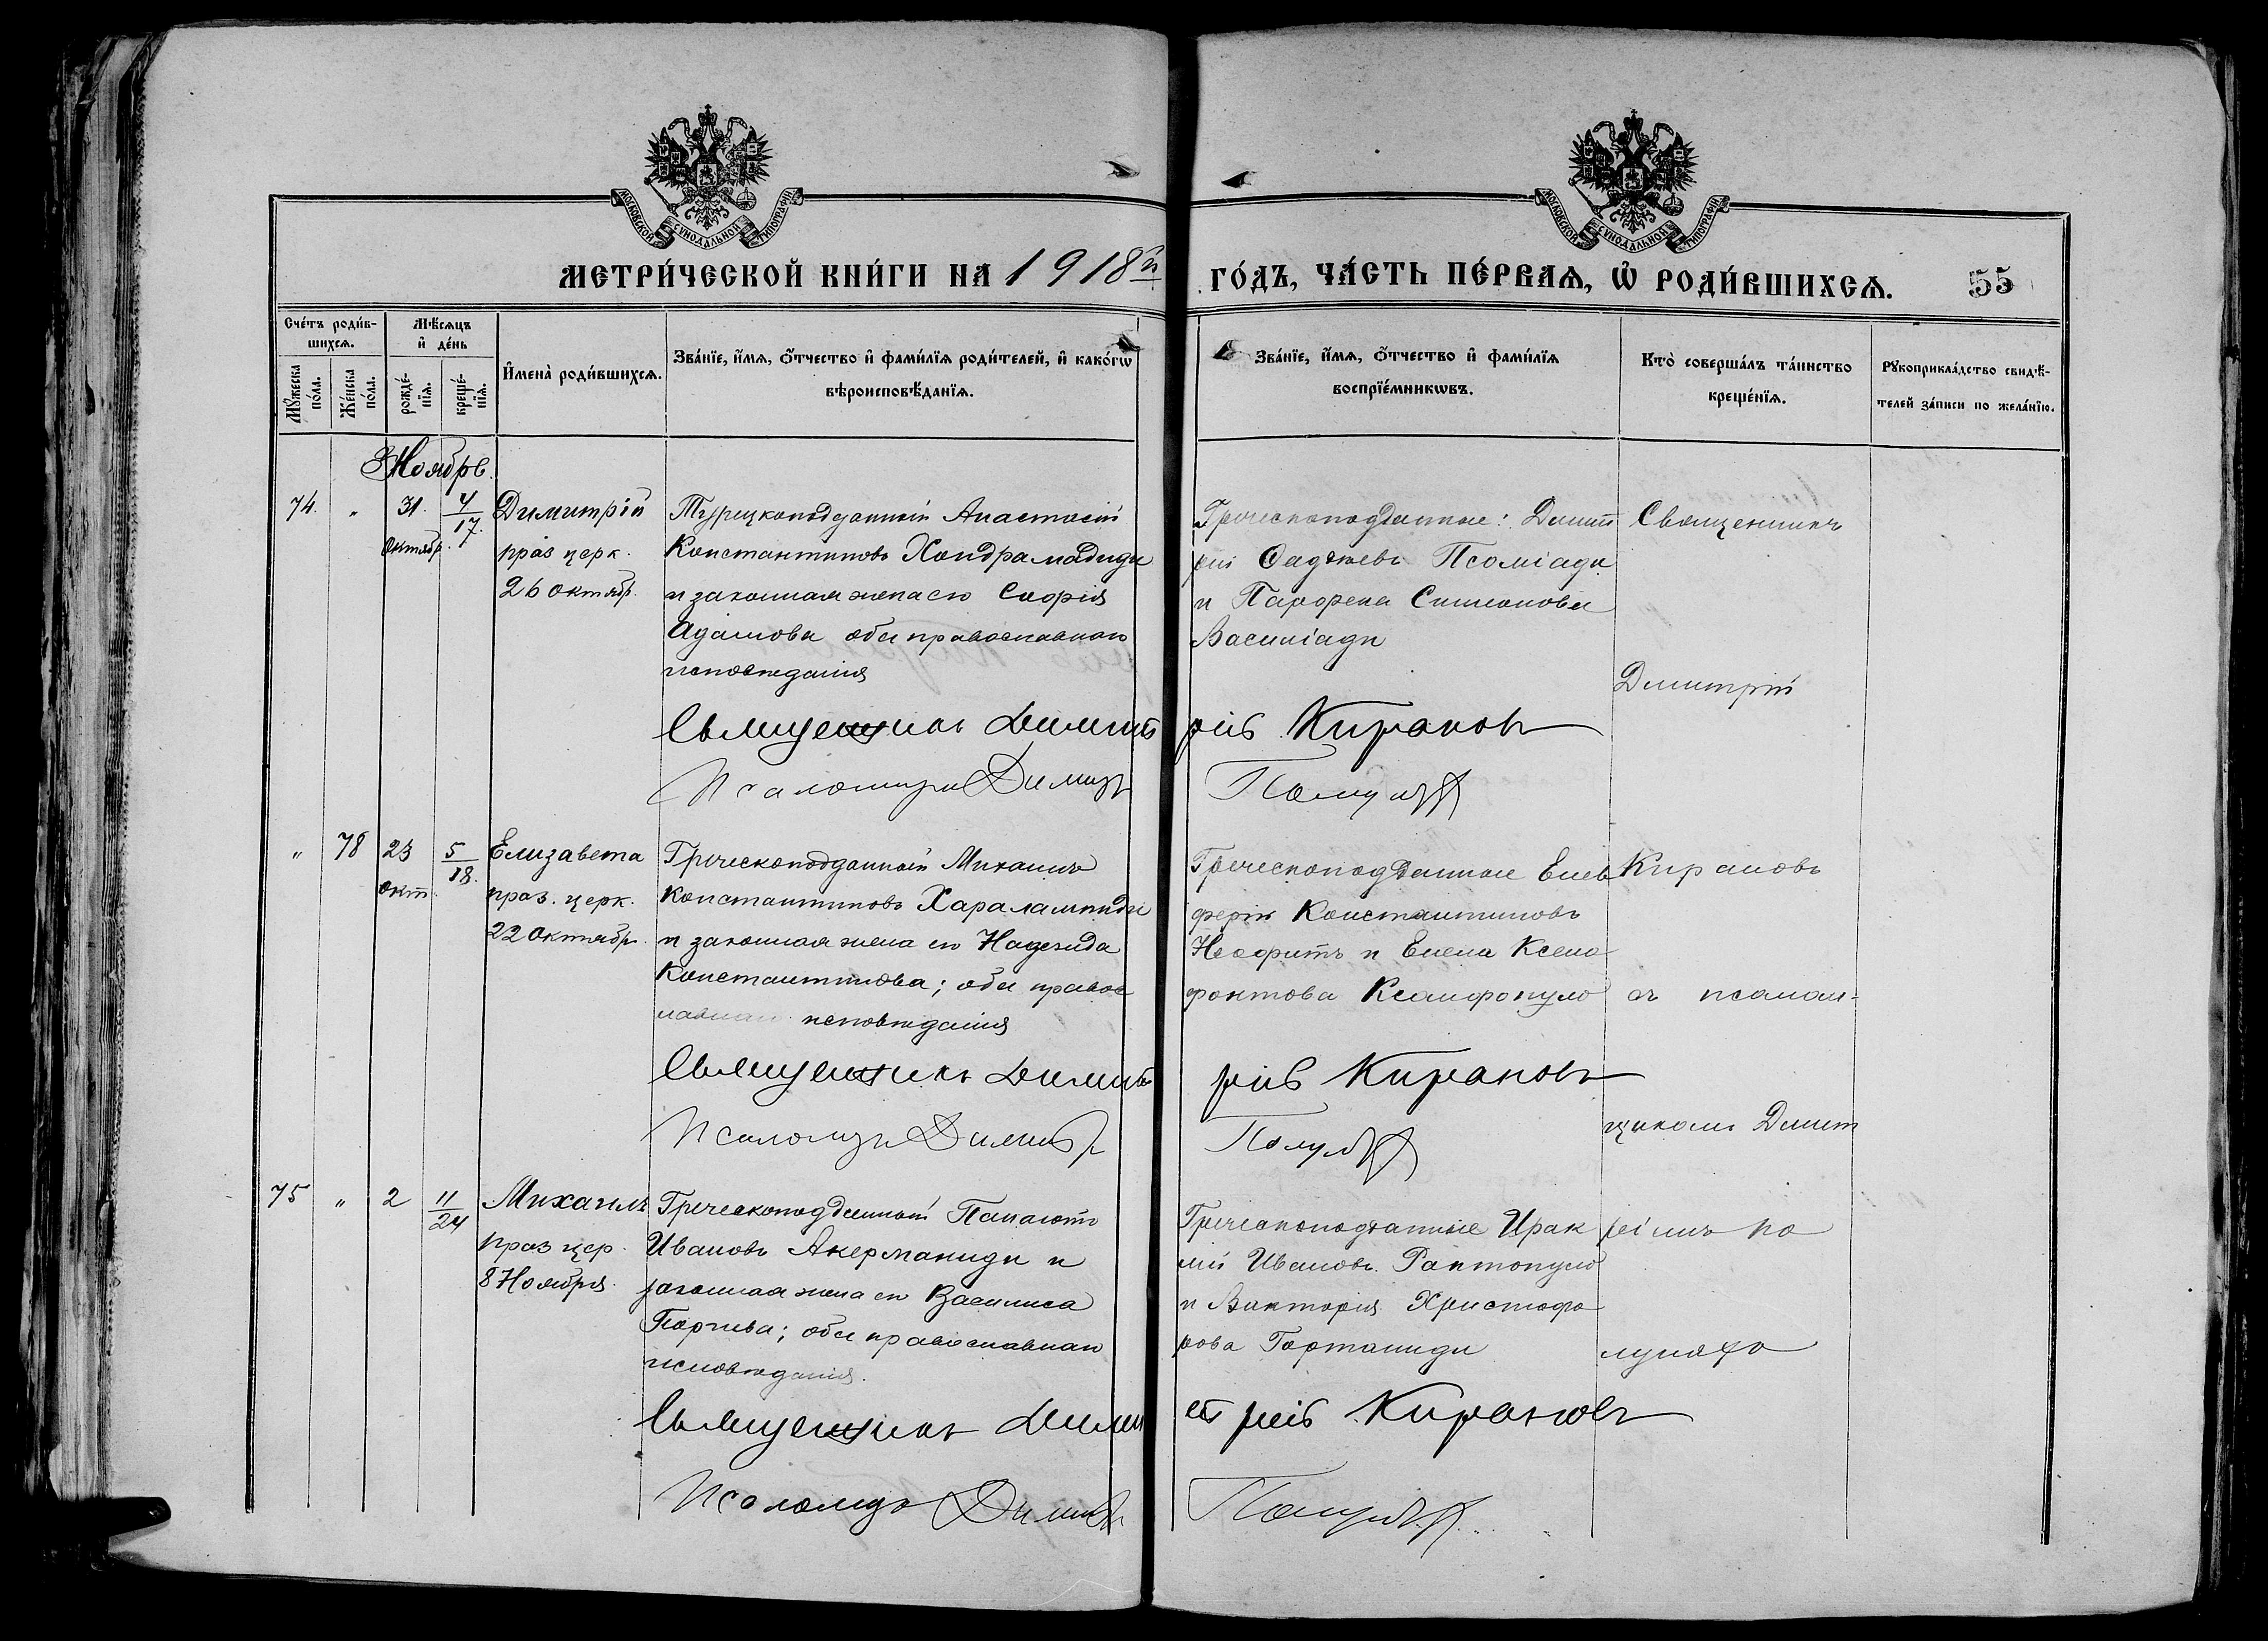 МОСКОВСКОЙ СУНОДАЛЬНОЙ ТИПОГРАФІИ
МОСКОВСКОЙ СУНОДАЛЬНОЙ ТИПОГРАФІИ
МЕТРИ́ЧЕСКОЙ КНИ́ГИ НА 1918й
ГО́ДЪ, ЧА́СТЬ ПЕ́РВАѦ, Ѿ РОДИ́ВШИХСѦ. 55
Сче́тъ роди́в-
шихсѧ.
Мѣ́сѧцъ
и҆ де́нь
Мꙋ́жеска
по́ла.
Же́нска
по́ла.
рожде́-
нїѧ.
креще́-
нїѧ.
И҆мена̀ роди́вшихсѧ.
Зва́нїе, и҆́мѧ, ѻ҆́тчество и҆ фами́лїѧ роди́телей, и҆ како́гѡ
вѣроисповѣ́данїѧ.
Зва́нїе, и҆́мѧ, ѻ҆́тчество и҆ фами́лїѧ
воспрїе́мникѡвъ.
Кто̀ соверша́лъ та́инство
креще́нїѧ.
Рꙋкоприкла́дство свидѣ́-
телей за́писи по жела́нїю.
Ноябрь.
74. „ 31. 4/17.
Октябр.
Димитрій
праз церк.
26 октябр.
Турецкоподданный Анастасій
Константиновъ Хондрамадиди
и законная жена его Софія
Адамова оба православнаго
исповѣданія
Греческоподданные: Димит
рій Фаддѣевъ Псоміади
и Парфена Симеонова
Василіади
Священникъ
Дмитрій
Священникъ Димит
рій Кираковъ
Псаломщ Димит
„ 78 23 5/18.
окт.
Елизавета
праз. церк.
22 октябр.
Греческоподданный Михаилъ
Константиновъ Харалампиди
и законная жена его Надежда
Константинова; оба правос
лавнаго исповѣданія
Греческоподданные Елев
ферій Константиновъ
Неофитъ и Елена Ксено
фонтова Ксанфопуло
Кираковъ
съ псалом-
Священникъ Димит
рій Кираковъ
Псаломщ Димит
щикомъ Димит
75 „ 2 11/24
Михаилъ
праз цер.
8 Ноября.
Греческоподданный Панаіотъ
Ивановъ Акерманиди и
законная жена его Василиса
Георгіева; оба православнаго
исповѣданія.
Греческоподданные Ирак
лій Ивановъ Рафтопуло
и Викторія Христофо
рова Гортаниди
ріемъ По
лунд
Священникъ Дими
трій Кираковъ
Псаломщ Димит